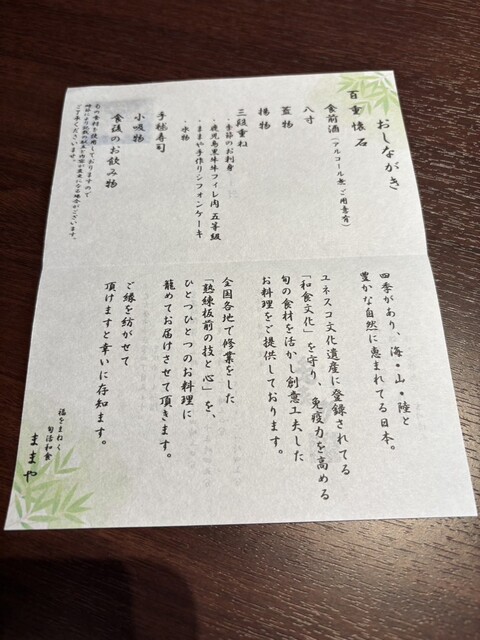 おしながき
百重懐石
食前酒（アルコール無ご用意有）
八寸
蓋物
揚物
三段重ね
・季節のお刺身
・鹿児島黒毛牛フィレ肉 五等級
・ままや手作りシフォンケーキ
・水物
手毬寿司
小吸物
食後のお飲み物
旬の食材を使用しておりますので
時期により記載の献立と内容が変更になる場合がございます。
ご了承くださいませ。
四季があり、海・山・陸と
豊かな自然に恵まれてる日本。
ユネスコ文化遺産に登録されてる
「和食文化」を守り、免疫力を高める
旬の食材を活かし創意工夫した
お料理をご提供しております。
全国各地で修業をした
「熟練板前の技と心」を、
ひとつひとつのお料理に
籠めてお届けさせて頂きます。
ご縁を紡がせて
頂けますと幸いに存知ます。
福をまねく
旬活和食
ままや